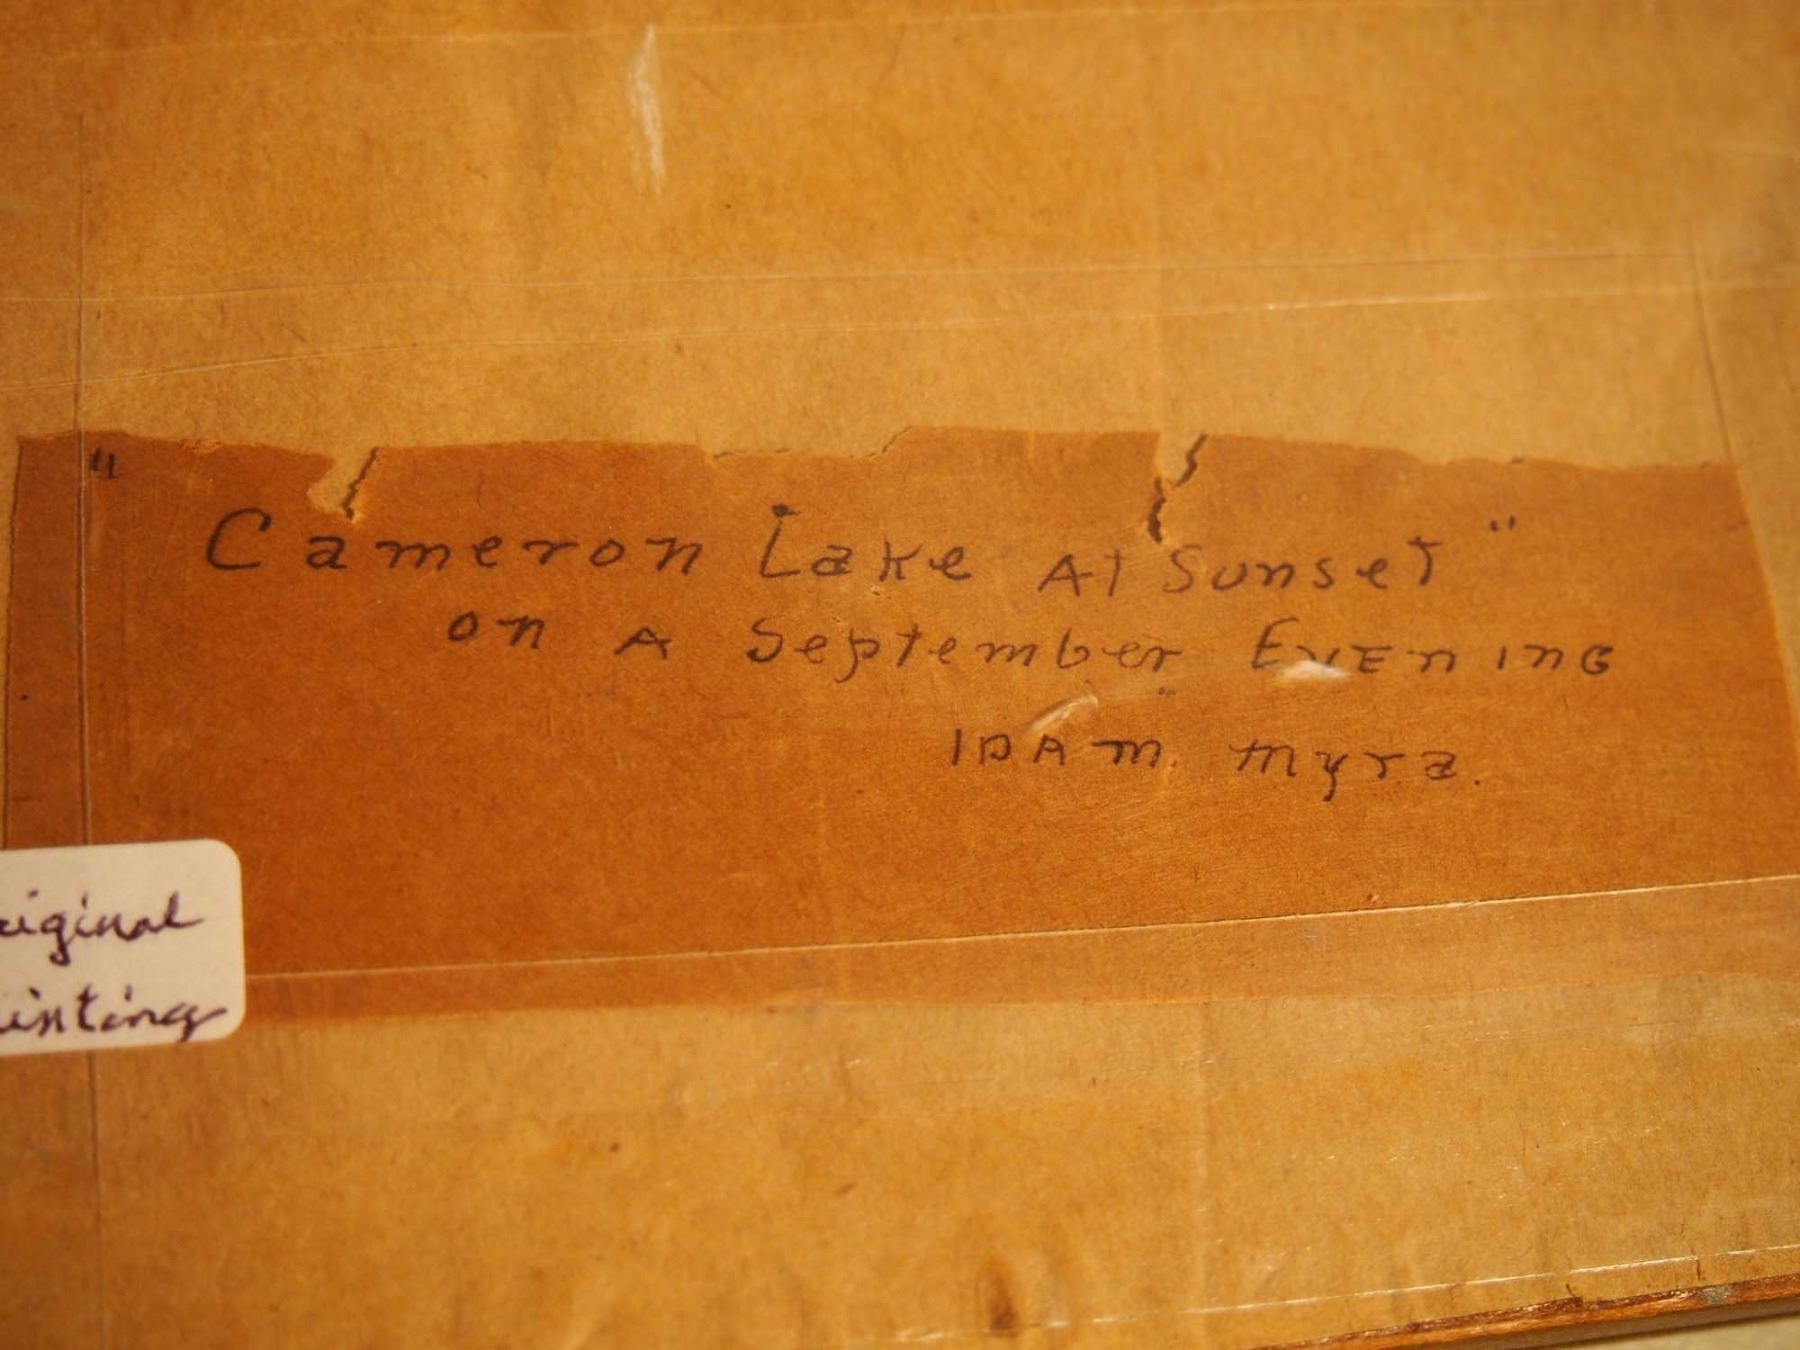 "Cameron Lake At Sunset"
on A September EvEning
IDA m. myra.
riginal
inting